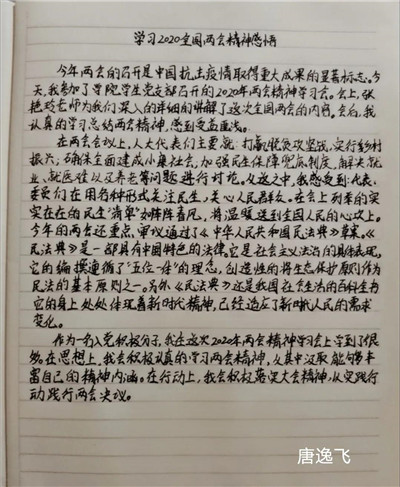 学习2020全国两会精神感悟
今年两会的召开是中国抗击疫情取得重大成果的显著标志。今
天,我参加了学院学生党支部召开的2020年两会精神学习会。会上,张
艳玲老师为我们深入的详细的讲解了这次全国两会的内容。会后,我
认真的学习总结两会精神,感到受益匪浅。
在两会会议上,人大代表们主要就:打赢脱贫攻坚战,实行乡村
振兴,确保全面建成小康社会,加强民生保障兜底制度,解决就
业、就医难以及养老等问题进行讨论。从这之中,我感受到:代表、
委员们在用各种形式关注民生,关心人民群众。在会上列举的实
实在在的民生"清单"如阵阵春风,将温暖送到全国人民的心坎上。
今年的两会还重点审议通过了《中华人民共和国民法典》草案。《
民法典》是一部具有中国特色的法律,它是社会主义法治的具体表现。
它的编撰遵循了"五位一体"的理念,创造性的将生态保护原则作为
民法的基本原则之一。另外《民法典》还是我国在社会生活的百科全书
它的身上处处体现着新时代精神,已经适应了新时代人民的需求
变化。
作为一名入党积极分子,我在这次2020年两会精神学习会上学到了很
多。在思想上,我会积极认真的学习两会精神,从其中汲取能够丰
富自己的精神内涵。在行动上,我会积极落实大会精神,从实践行
动践行两会决议。
唐逸飞